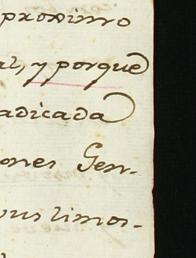 proximo
al, y porque
adicada
ones Gen-
us limos-